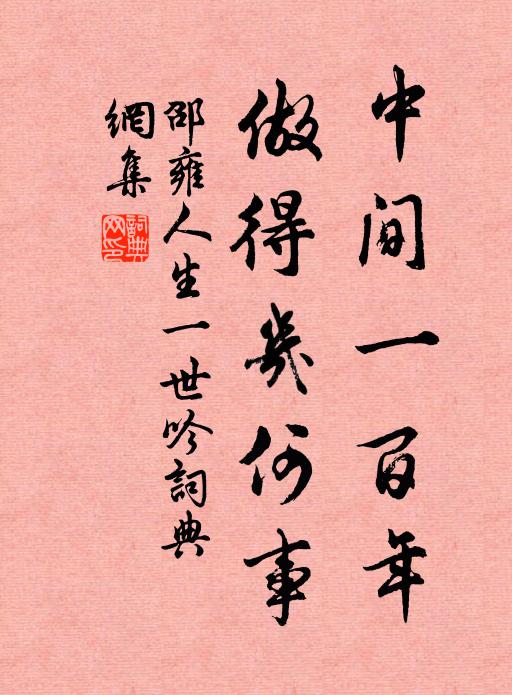 中间一百年
做得幾何事
邵雍人生一世吟詞典
網集
詞典網印